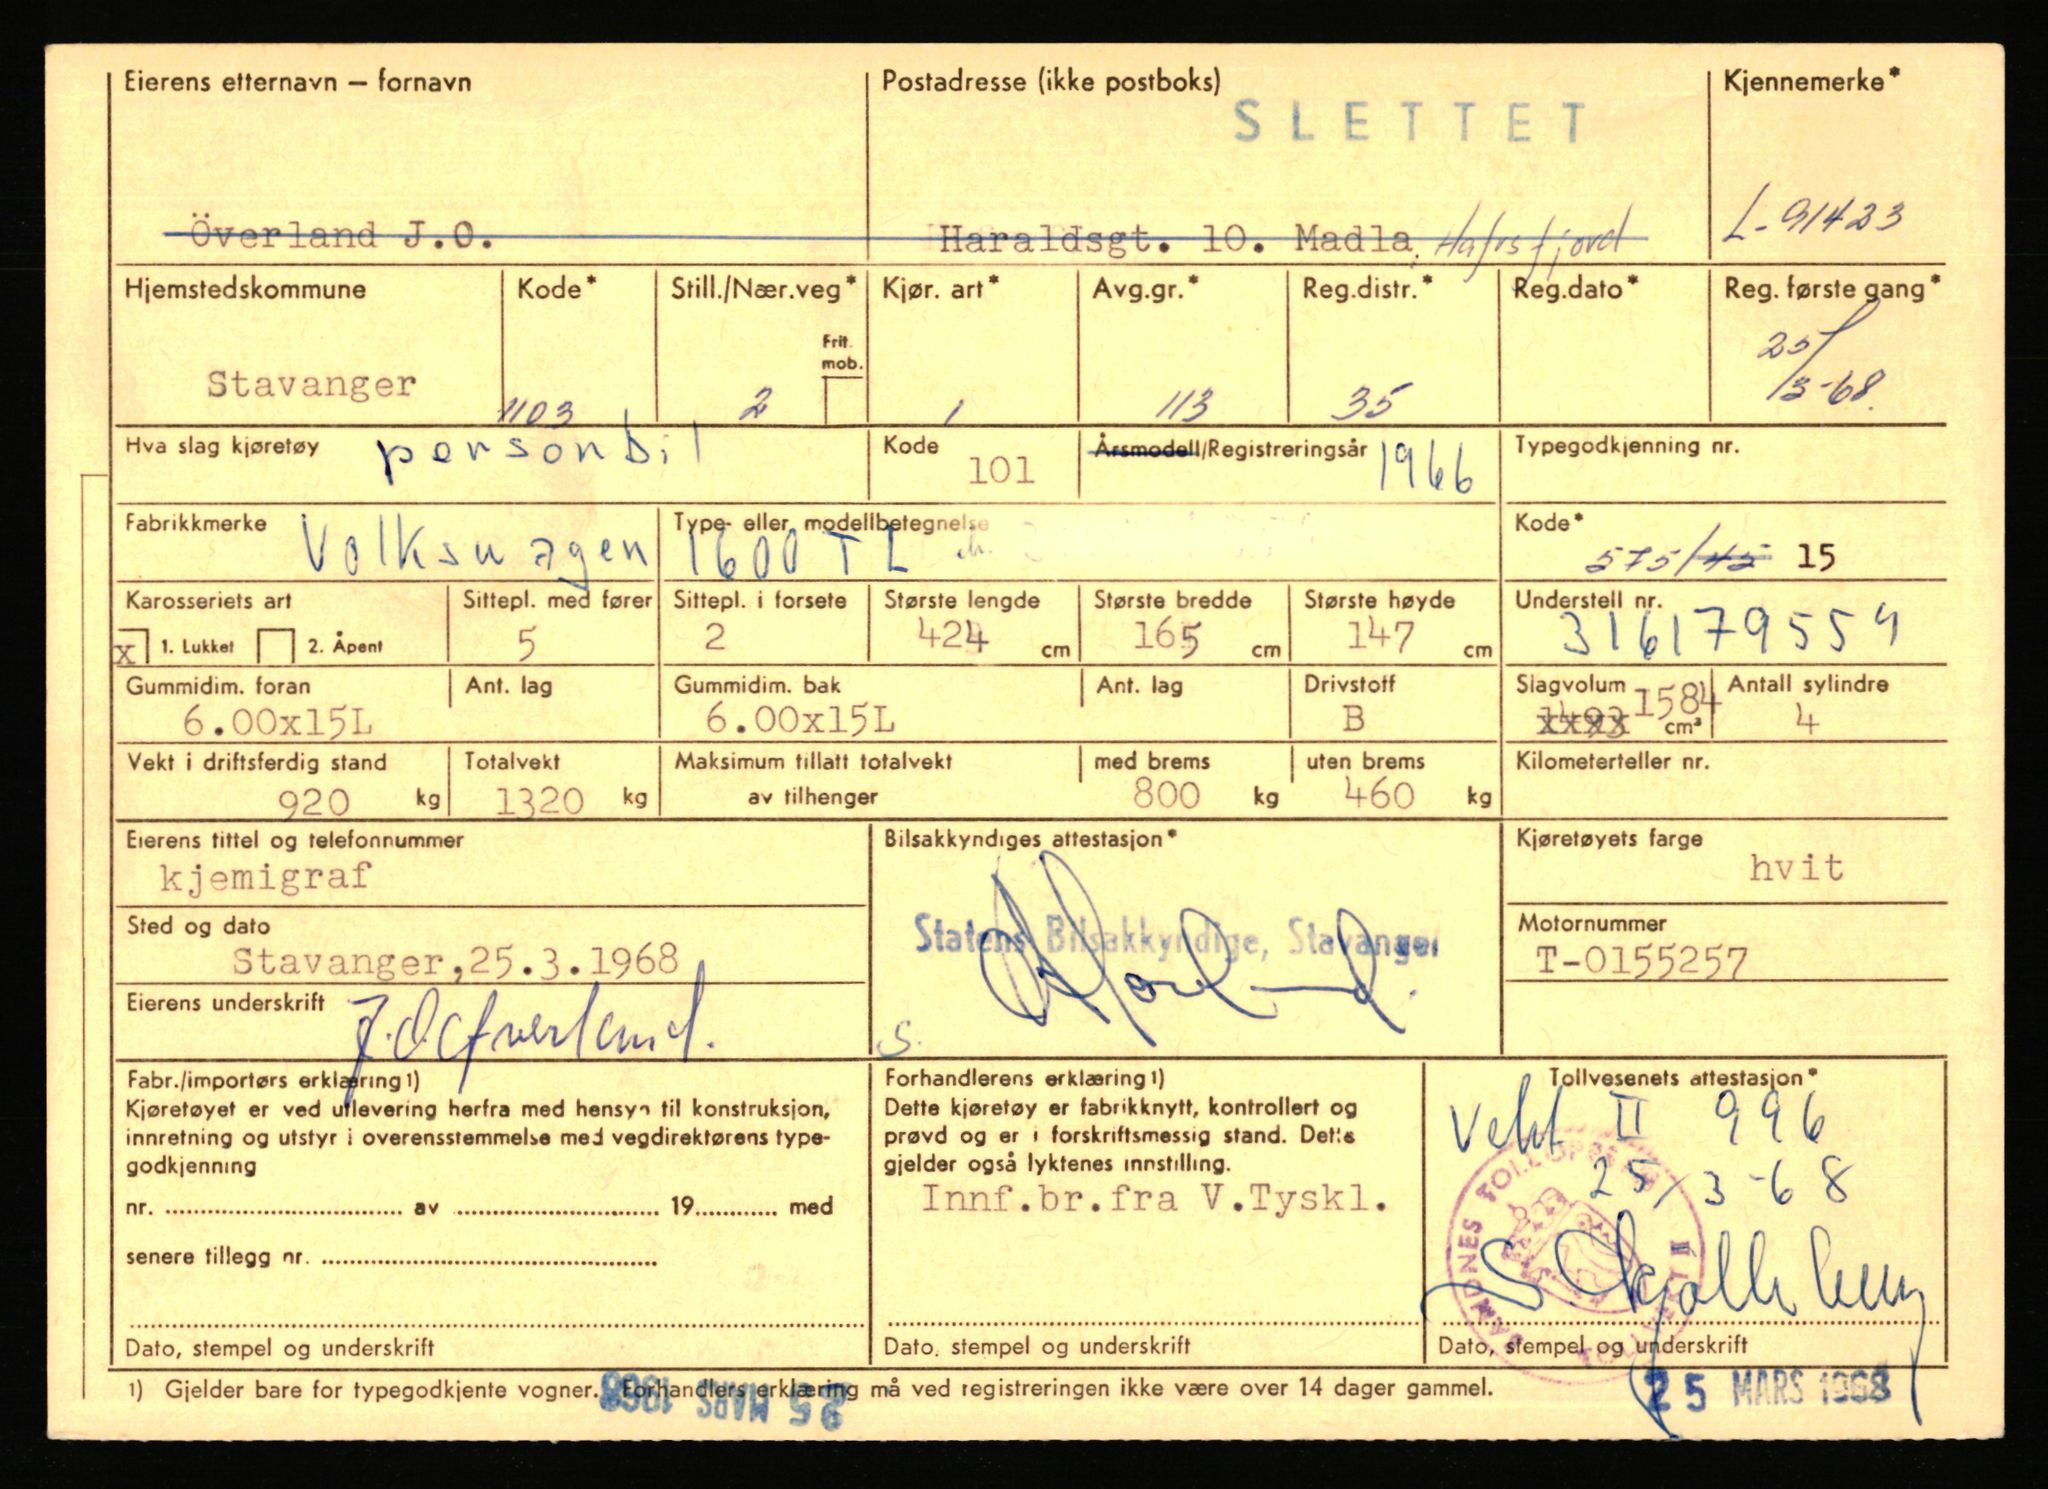 Eierens etternavn – fornavn Postadresse (ikke postboks) Kjennemerke*
SLETTET
Överland J.O. Haraldsgt. 10. Madla, Hafrsfjord L-91423
Hjemstedskommune Kode* Still./Nær.veg* Kjør. art* Avg.gr.* Reg.distr.* Reg.dato* Reg. første gang*
Frit. mob.
Stavanger 1103 2 1 113 35 25/3-68.
Hva slag kjøretøy personbil Kode 101 Årsmodell/Registreringsår 1966 Typegodkjenning nr.
Fabrikkmerke Volkswagen Type- eller modellbetegnelse 1600 TL Kode* 575/45 15
Karosseriets art Sittepl. med fører Sittepl. i forsete Største lengde Største bredde Største høyde Understell nr.
x 1. Lukket 2. Åpent 5 2 424 cm 165 cm 147 cm 316179554
Gummidim. foran Ant. lag Gummidim. bak Ant. lag Drivstoff Slagvolum Antall sylindre
6.00x15L 6.00x15L B 1493 1584 cm³ 4
Vekt i driftsferdig stand Totalvekt Maksimum tillatt totalvekt med brems uten brems Kilometerteller nr.
920 kg 1320 kg av tilhenger 800 kg 460 kg
Eierens tittel og telefonnummer Bilsakkyndiges attestasjon* Kjøretøyets farge
kjemigraf hvit
Sted og dato Statens Bilsakkyndige, Stavanger Motornummer
Stavanger,25.3.1968 T-0155257
Eierens underskrift J.O. Øverland.
S.
Fabr./importørs erklæring1) Forhandlerens erklæring1) Tollvesenets attestasjon*
Kjøretøyet er ved utlevering herfra med hensyn til konstruksjon, Dette kjøretøy er fabrikknytt, kontrollert og Vekt II 996
innretning og utstyr i overensstemmelse med vegdirektørens type- prøvd og er i forskriftsmessig stand. Dette
godkjenning gjelder også lyktenes innstilling. 25/3-68
nr. ........ av ........ 19........ med Innf.br.fra V.Tyskl.
senere tillegg nr. ........
Dato, stempel og underskrift Dato, stempel og underskrift Dato, stempel og underskrift
1) Gjelder bare for typegodkjente vogner. Forhandlers erklæring må ved registreringen ikke være over 14 dager gammel.
25 MARS 1968 25 MARS 1968